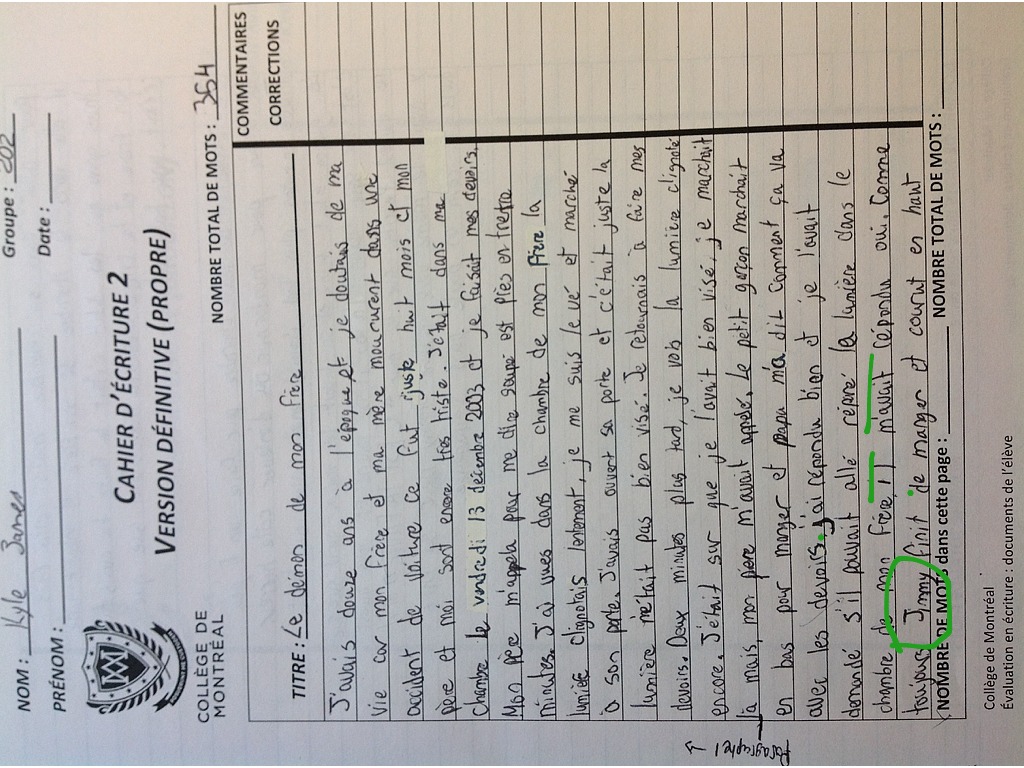 NOM : Kyle James Groupe : 202
PRÉNOM : Date :
COLLÈGE DE
MONTRÉAL
CAHIER D'ÉCRITURE 2
VERSION DÉFINITIVE (PROPRE)
NOMBRE TOTAL DE MOTS : 364
TITRE : Le démon de mon frère
COMMENTAIRES
CORRECTIONS
J'avais douze ans à l'époque et je doutais de ma
vie car mon frère et ma mère moururent dans une
accident de voiture ce fut juste huit mois et mon
père et moi sont encore très triste. J'était dans ma
chambre le vendredi 13 décembre 2003 et je faisait mes devoirs.
Mon père m'appela pour me dire soupé est près en trente
minutes. J'ai vues dans la chambre de mon frère la
lumière clignotais lentement, je me suis levé et marché
à son porte. J'avais ouvert sa porte et c'était juste la
lumière n'était pas bien visé. Je retournais à faire mes
devoirs. Deux minutes plus tard, je vois la lumière clignoté
encore. J'était sur que je l'avait bien visé, je marchait
là mais, mon père m'avait appelé. Le petit garçon marchait
en bas pour manger et papa m'a dit comment ça va
avec les devoirs. j'ai répondu bien et je l'avait
demandé s'il pouvait allé réparé la lumière dans le
chambre de mon frère, il m'avait répondu oui. Comme
toujours Jimmy finit de manger et courut en haut
Paragraphe 1 →
NOMBRE DE MOTS dans cette page : NOMBRE TOTAL DE MOTS :
Collège de Montréal
Évaluation en écriture : documents de l'élève